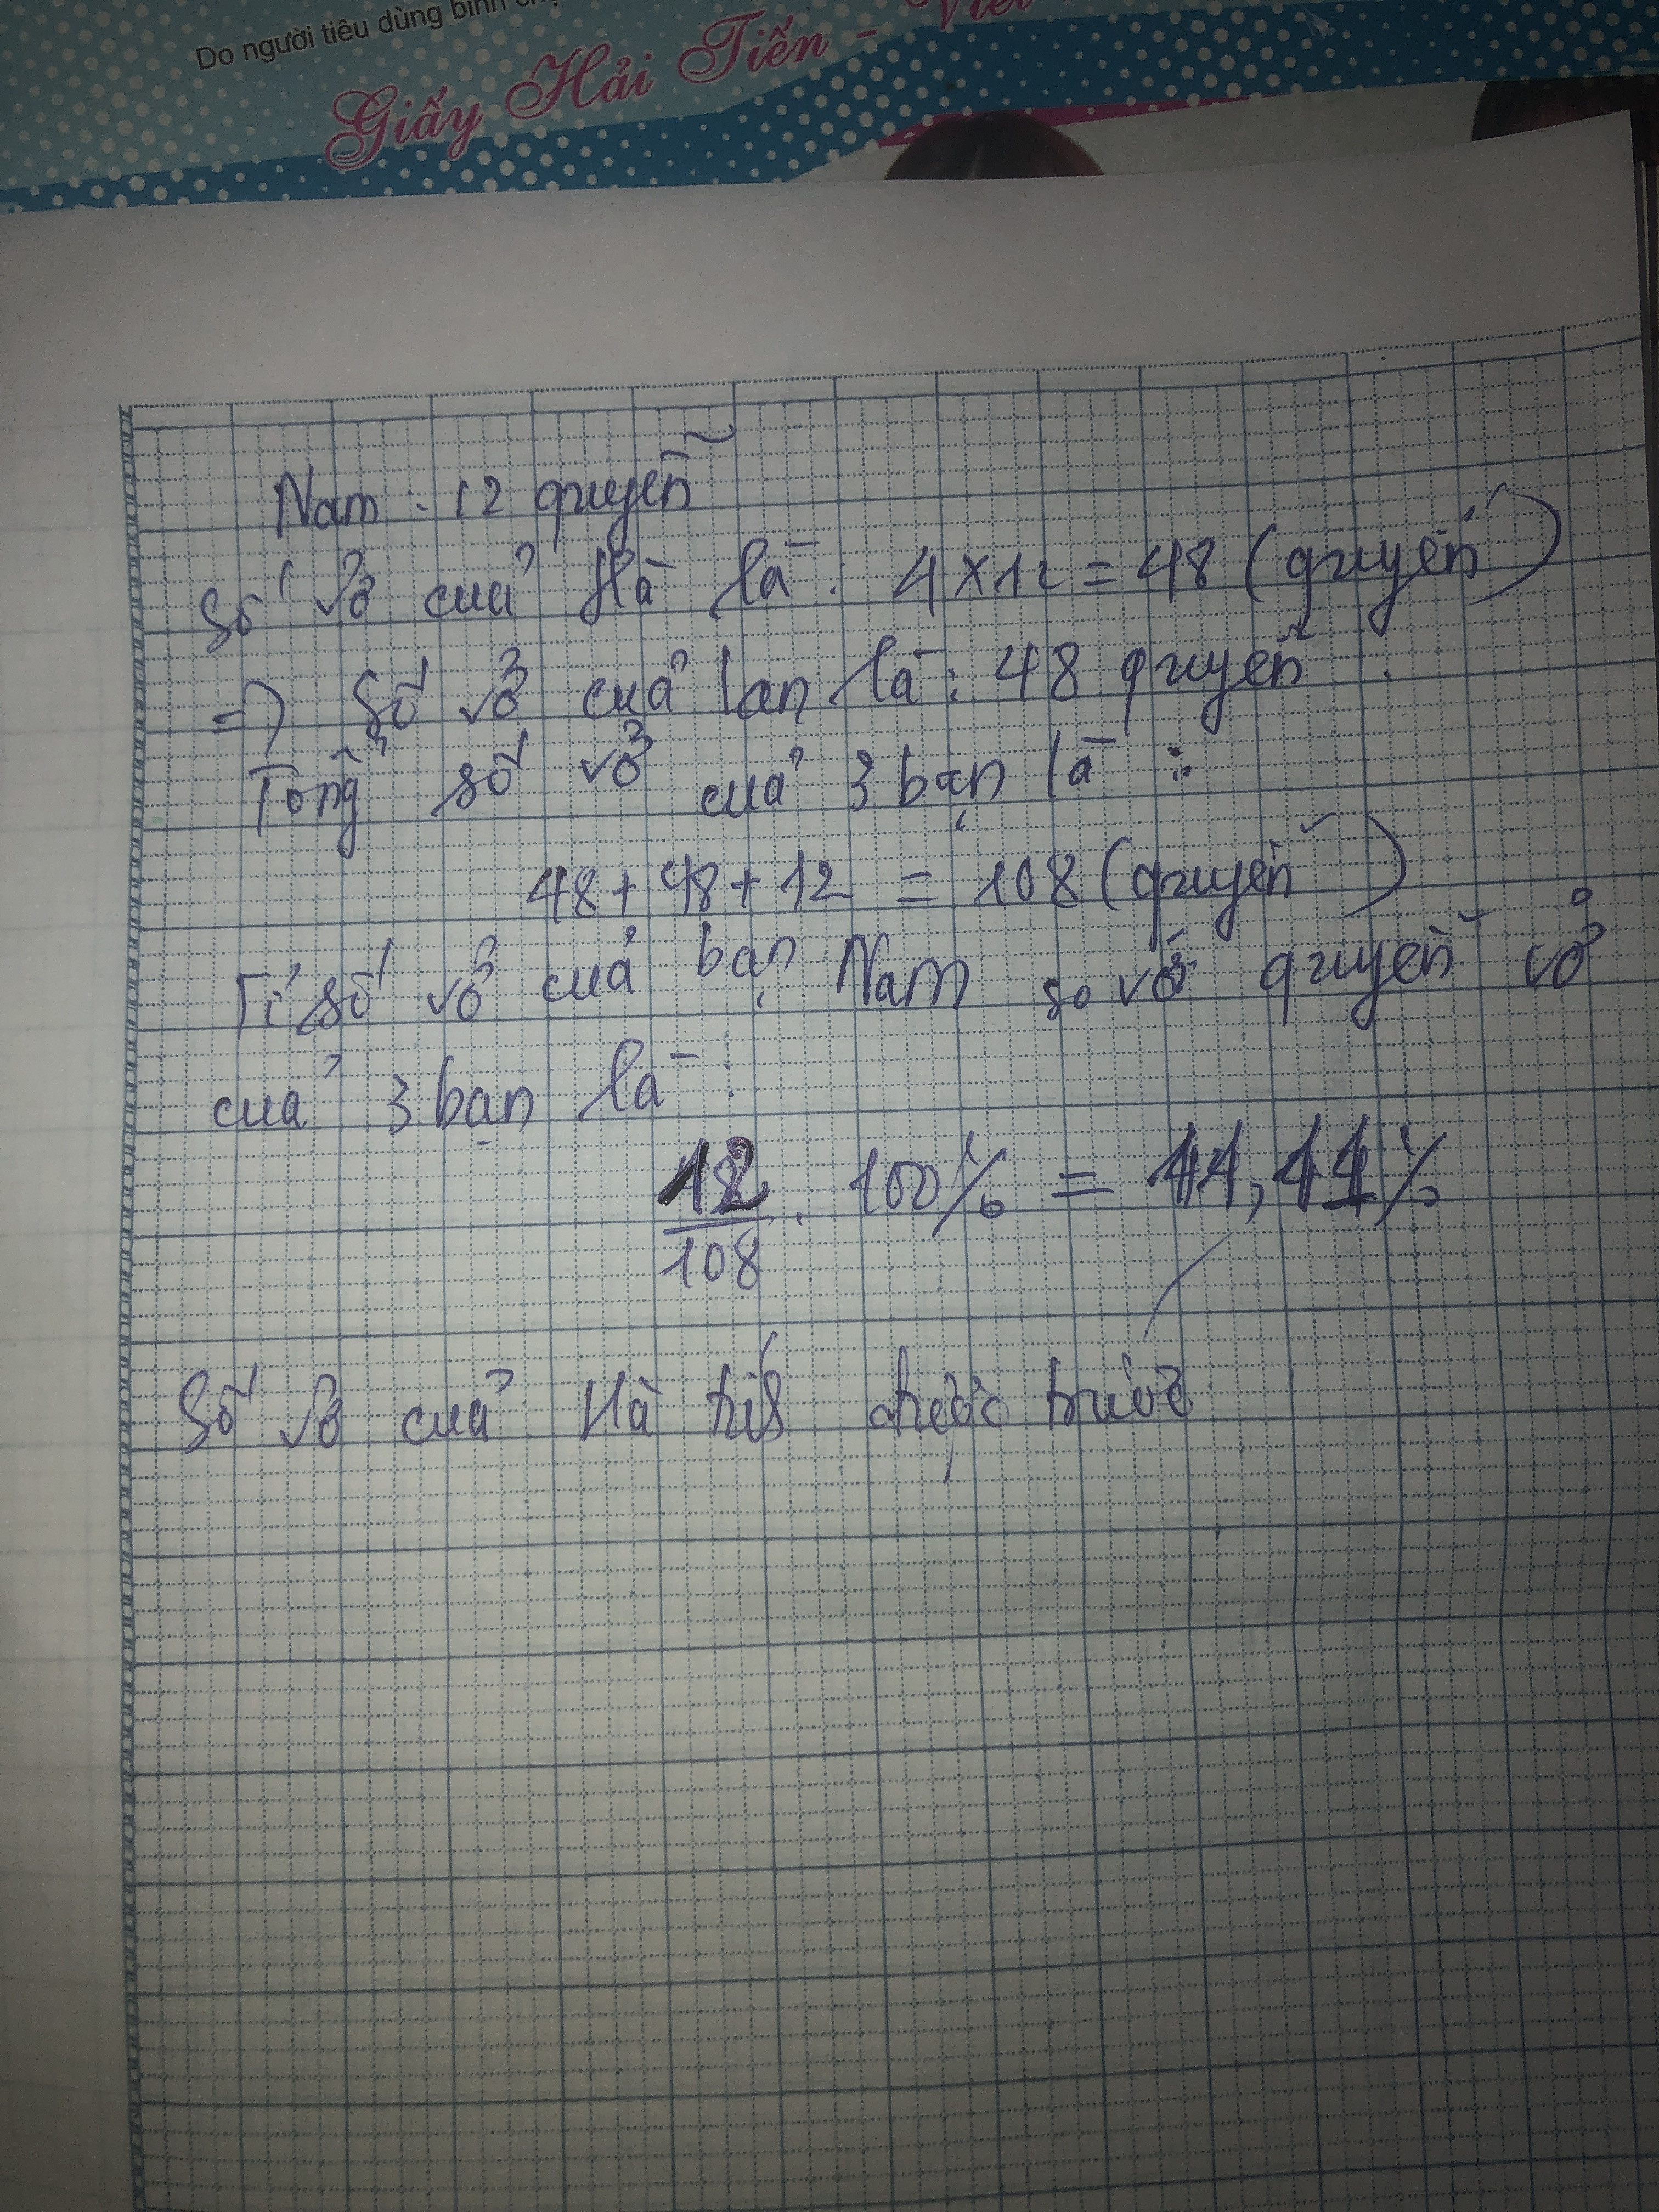 Do người tiêu dùng bình ch
Giấy Hải Tiến - Việ
Nam : 12 quyển
Số vở của Hà là : 4 x 12 = 48 (quyển)
=> Số vở của lan là : 48 quyển .
Tổng số vở của 3 bạn là :
48 + 48 + 12 = 108 (quyển)
Tỉ số vở của bạn Nam so với quyển vở
của 3 bạn là :
12/108 . 100% = 11,11%
Số vở của Hà